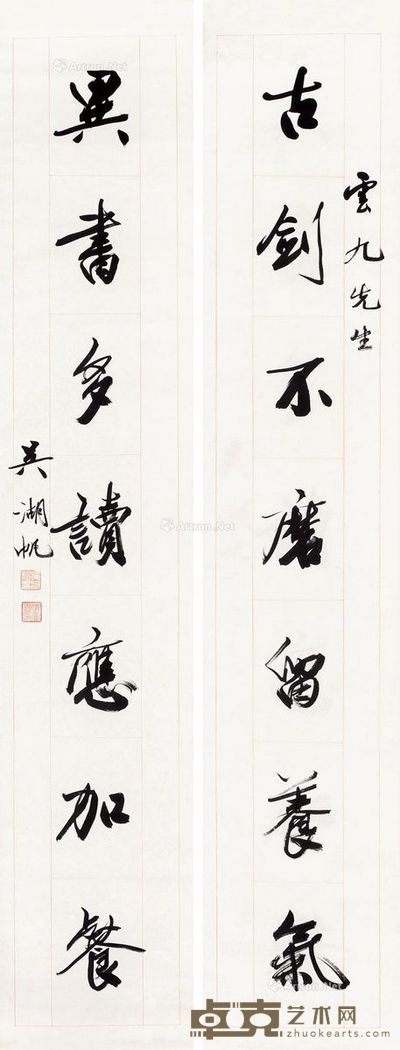 雲九先生
古劍不磨留養氣
異書多讀應加餐
吳湖帆
Artron.Net
Artron.Net
卓克艺术网
zhuokearts.com